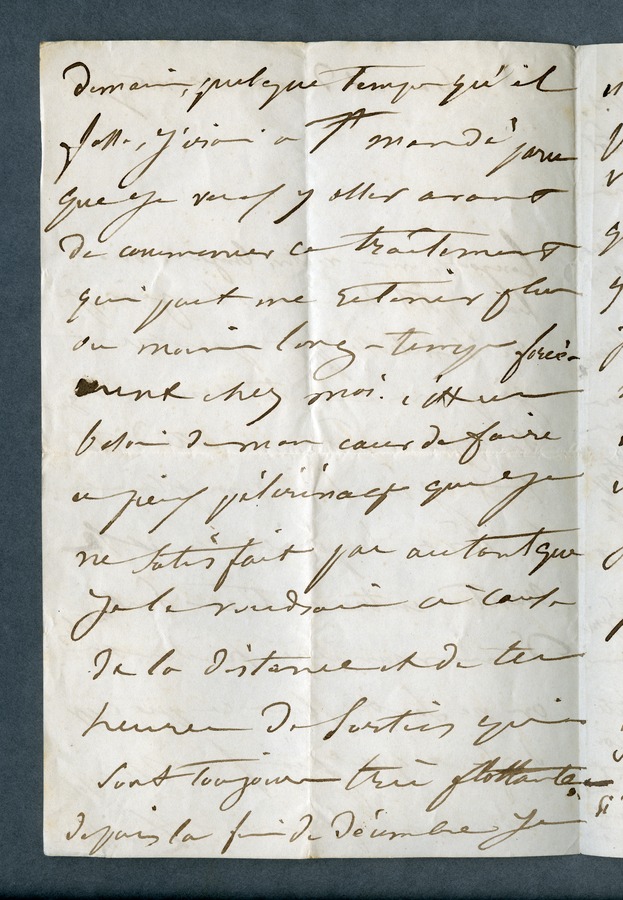 demain, quelque temps qu'il
fasse, j'irai a St mandé parce
que je veux y aller avant
de commencer ce traitement
qui peut me retenir plus
ou moins long-temps forcé-
ment chez moi. c'est un
besoin de mon cœur de faire
ce pieux pélérinage que je
ne satisfait pas autant que
je le voudrais à cause
de la distance et de tes
heures de sorties qui
sont toujours très flottantes
depuis la fin de décembre. Je